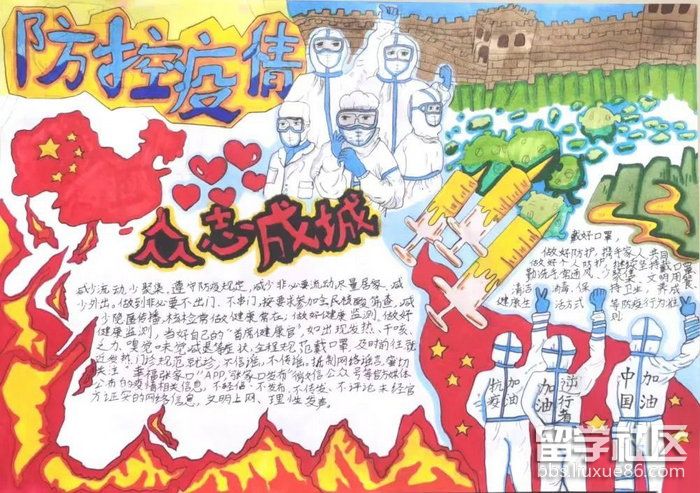 防控疫情
众志成城
减少流动,少聚集,遵守防疫规定,减少非必要流动,尽量居家、减
少外出。做到非必要不出门、不串门,按要求参加全民核酸筛查,减
少隐匿传播,核检常做健康常在,做好健康监测,做好
健康监测,当好自己的“首席健康官”,如出现发热、干咳、
乏力、嗅觉味觉减退等症状,全程规范戴口罩,及时前往就
近发热门诊规范就诊,不信谣,不传谣,抵制网络谣言,密切
关注“幸福张家口”APP,“张家口发布”微信公众号等官方媒体
公布的疫情相关信息,不轻信、不发布、不传发、不评论未经官
方证实的网络信息,文明上网、理性发声。
戴好口罩,
做好防护,携手家人共同
做好个人防护,继续坚持戴口罩
勤洗手常通风、少聚集、文明用餐
清洁消毒、保持卫生,养成
健康生活方式等防疫行为准则
抗疫 加油
加油 逆行者
中国 加油
留学社区
bbs.liuxue86.com